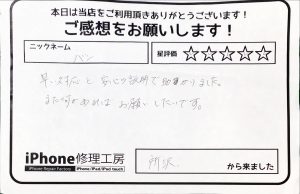 本日は当店をご利用頂きありがとうございます!
ご感想をお願いします!
ニックネーム
パン
星評価 ☆☆☆☆☆
早い対応と安心の説明で助かりました。
また何かあればお願いしたいです。
iPhone修理工房
iPhone Repair Factory iPhone/iPad/iPad touch
所沢
から来ました